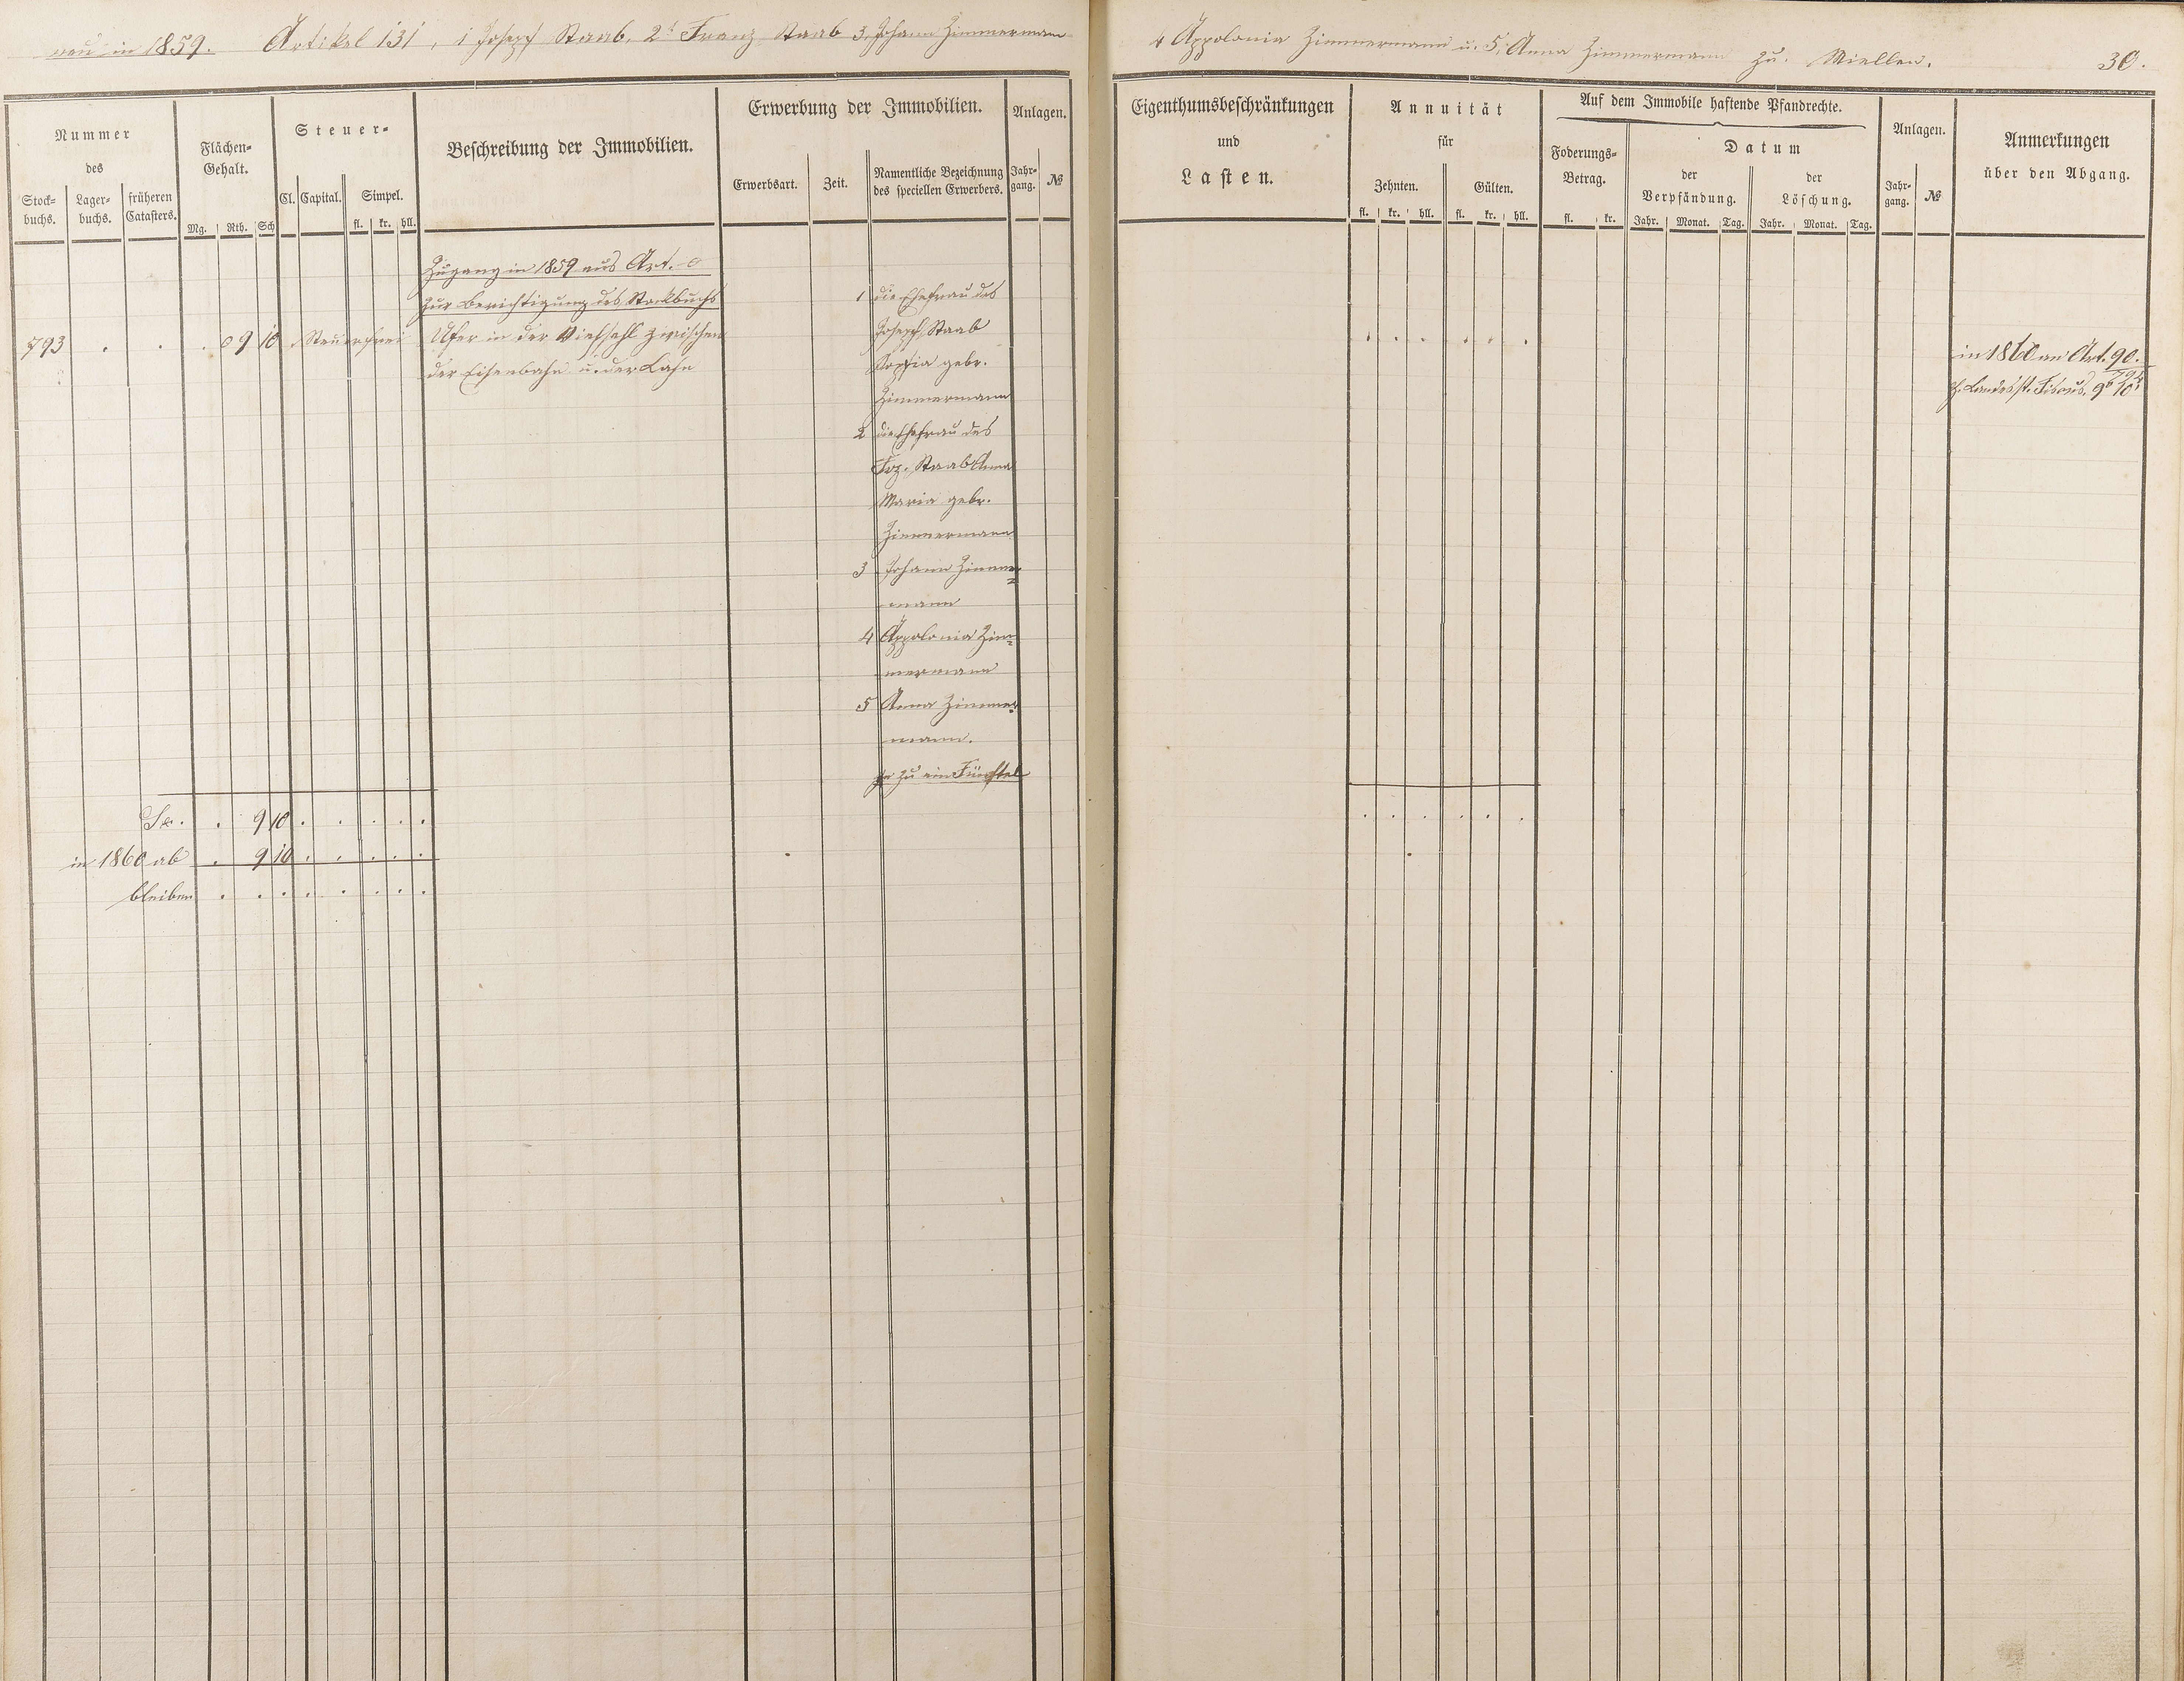 neu in 1859. Artikel 131, 1 Joseph Staab, 2t Franz Staab 3. Johann Zimmermann
4 Appolonia Zimmermann u. 5, Anna Zimmermann zu. Miellen. 30.
Nummer
des
Stock-
buchs.
Lager-
buchs.
früheren
Catasters.
Flächen-
Gehalt.
Mg. Rth. Sch
Steuer-
Cl. Capital. Simpel.
fl. kr. hll.
Beschreibung der Immobilien.
Erwerbung der Immobilien.
Erwerbsart. Zeit.
Namentliche Bezeichnung
des speciellen Erwerbers.
Anlagen.
Jahr-
gang. №
Eigenthumsbeschränkungen
und
Lasten.
Annuität
für
Zehnten. Gülten.
fl. kr. hll. fl. kr. hll.
Auf dem Immobile haftende Pfandrechte.
Foderungs-
Betrag.
fl. kr.
Datum
der
Verpfändung.
Jahr. Monat. Tag.
der
Löschung.
Jahr. Monat. Tag.
Anlagen.
Jahr-
gang. №
Anmerkungen
über den Abgang.
Zugang in 1859 aus Art. 0
zur Berichtigung des Stockbuchs
793 . . . 09 10 . Steuerfrei Ufer in der zwischen
der Eisenbahn u. der Lahn
1 die Ehefrau des
Joseph Staab
Sophia gebr.
Zimmermann
2 die Ehefrau des
Frz. Staab Anna
Maria gebr.
Zimmermann
3 Johann Zimmer-
mann
4 Appolonia Zim-
mermann
5 Anna Zimmer-
mann.
je zu ein Fünftel
in 1860 an Art. 90.
H. Landesh. Fiscus. 9 10
Sa. . 9 10 . . . . .
in 1860 ab . 9 10 . . . . .
bleiben . . . . . . . .